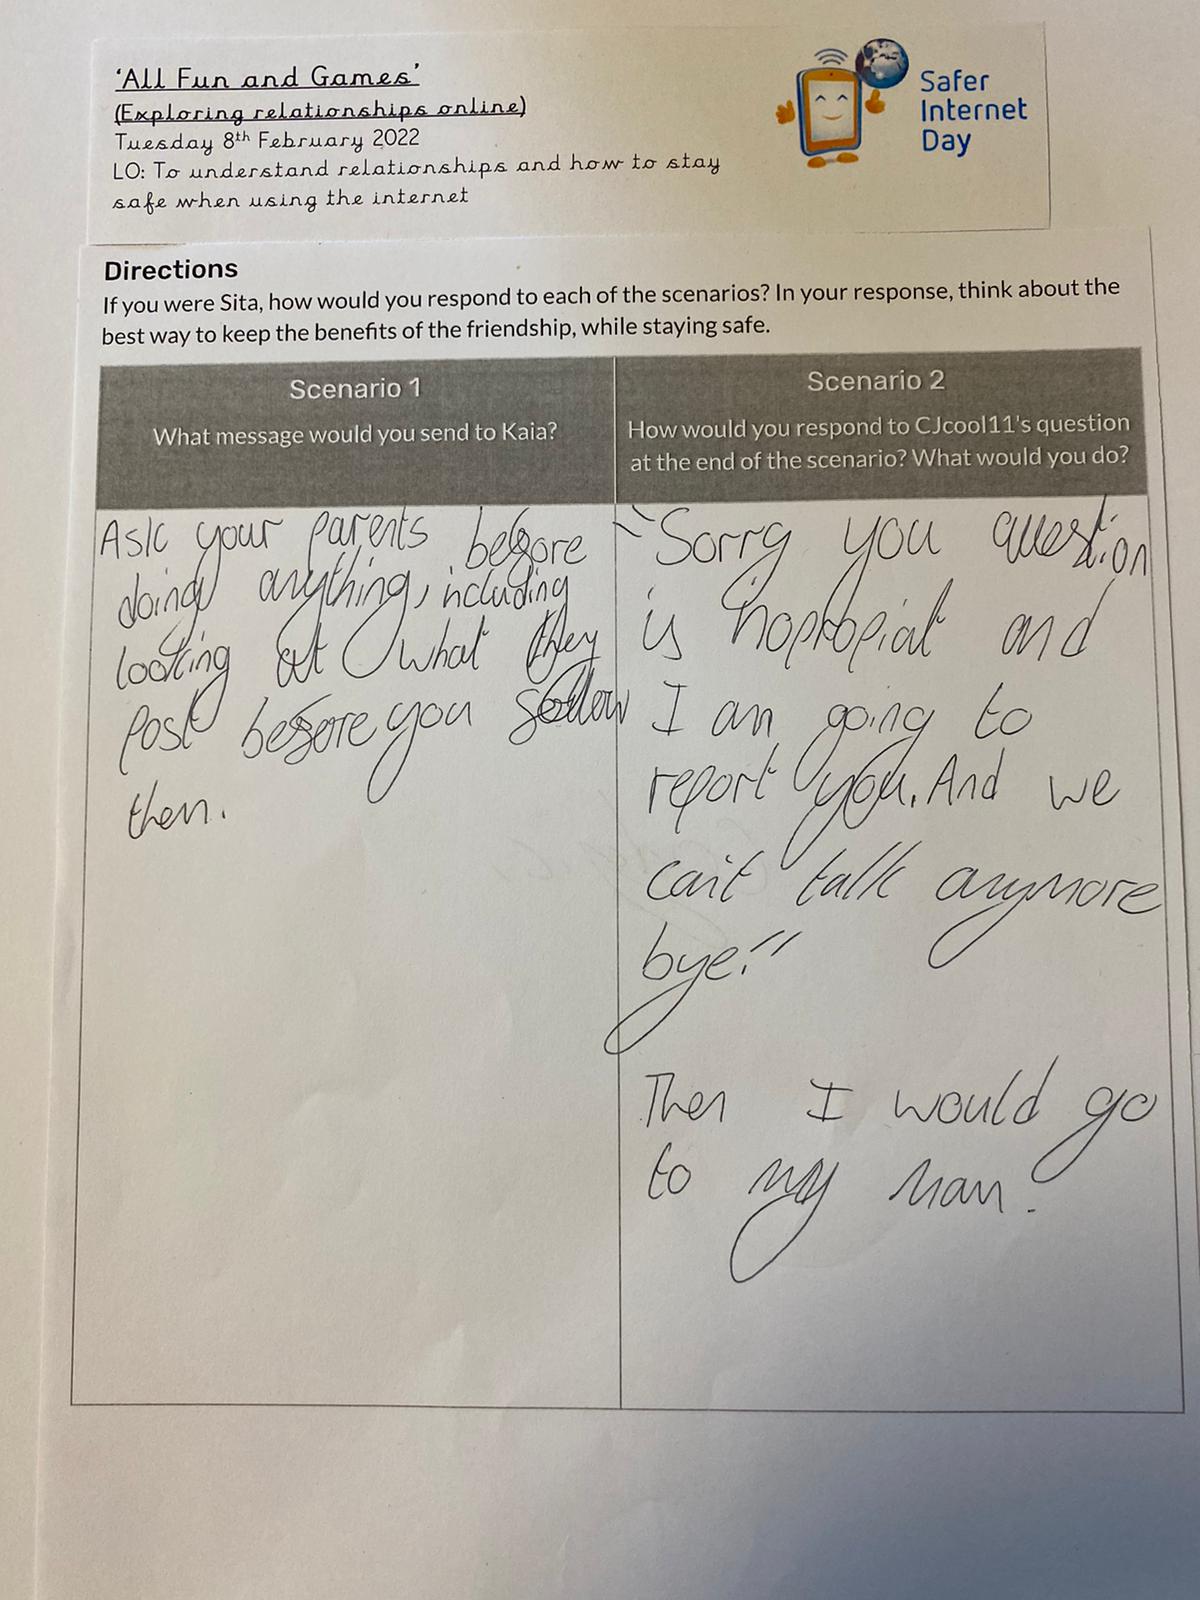 'All Fun and Games'
(Exploring relationships online)
Tuesday 8th February 2022
LO: To understand relationships and how to stay
safe when using the internet
Safer
Internet
Day
Directions
If you were Sita, how would you respond to each of the scenarios? In your response, think about the
best way to keep the benefits of the friendship, while staying safe.
Scenario 1
What message would you send to Kaia?
Ask your parents before
doing anything, including
looking at what they
post before you follow
them.
Scenario 2
How would you respond to CJcool11's question
at the end of the scenario? What would you do?
"Sorry you question
is nopropiat and
I am going to
report you. And we
can't talk anymore
bye."
Then I would go
to my mam.